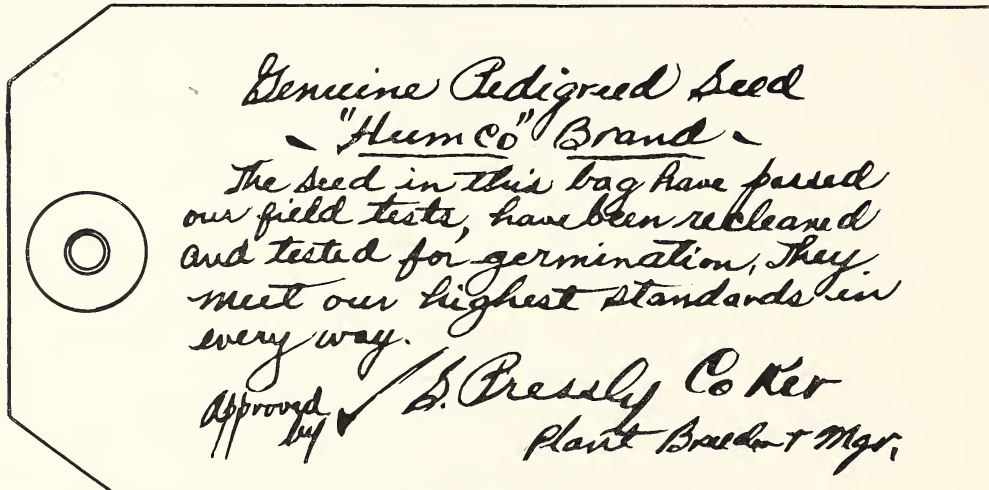 Genuine Pedigreed Seed
- "HumCo" Brand -
The seed in this bag have passed
our field tests, have been recleaned
and tested for germination. They
meet our highest standards in
every way.
Approved by ✓ S. Pressly Coker
Plant Breeder & Mgr.